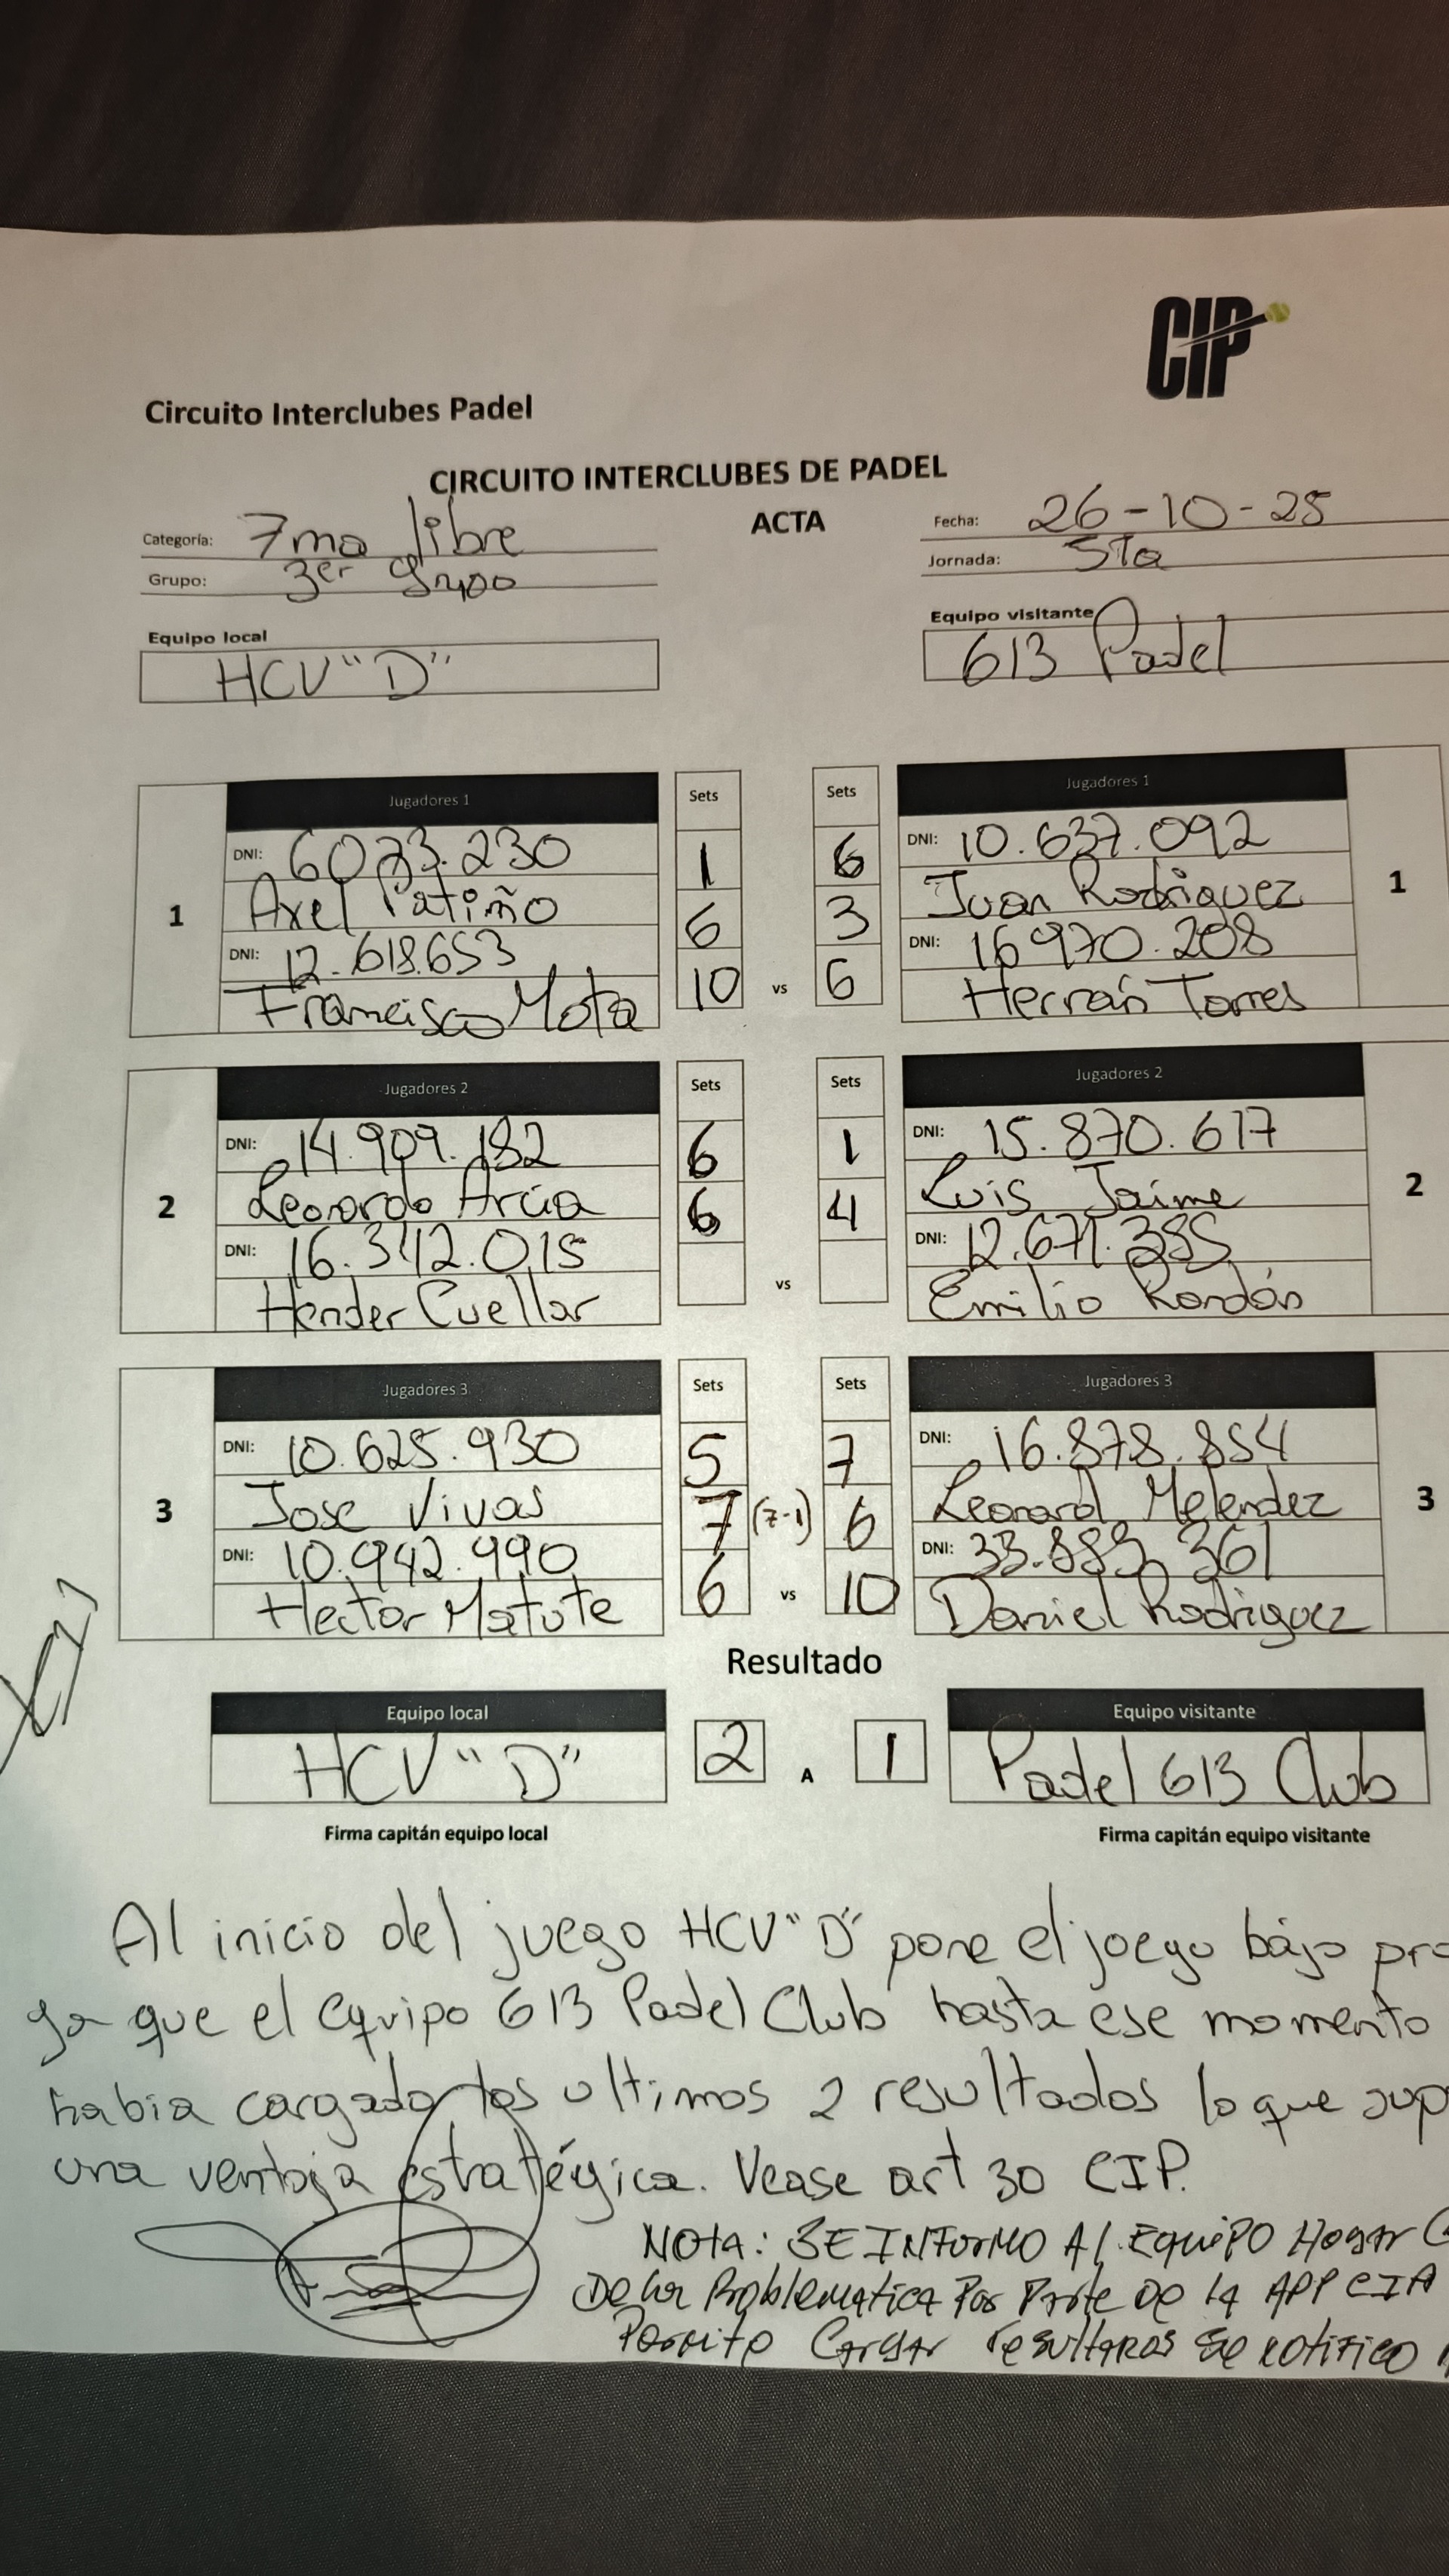 CIP
Circuito Interclubes Padel
CIRCUITO INTERCLUBES DE PADEL
ACTA
Categoría: 7ma libre
Grupo: 3er grupo
Fecha: 26-10-25
Jornada: 5Ta
Equipo local
HCV "D"
Equipo visitante
613 Padel
Jugadores 1 Sets Sets Jugadores 1
DNI: 6073.230 1 6 DNI: 10.637.092
1 Axel Patiño 6 3 Juan Rodriguez 1
DNI: 12.618.653 DNI: 16970.208
Francisco Mota 10 vs 6 Hernán Torres
Jugadores 2 Sets Sets Jugadores 2
DNI: 14.909.182 6 1 DNI: 15.870.617
2 Leonardo Arcia 6 4 Luis Jaime 2
DNI: 16.342.015 DNI: 12.671.
Hender Cuellar vs Emilio Rondón
Jugadores 3 Sets Sets Jugadores 3
DNI: 10.625.930 5 7 DNI: 16.878.854
3 Jose Vivas 7 (7-1) 6 Leonard Melendez 3
DNI: 10.942.990 DNI: 33.889.361
Hector Matute 6 vs 10 Daniel Rodriguez
Resultado
Equipo local Equipo visitante
HCV "D" 2 A 1 Padel 613 Club
Firma capitán equipo local Firma capitán equipo visitante
Al inicio del juego HCV "D" pone el juego bajo pro
ya que el equipo 613 Padel Club hasta ese momento
habia cargado los ultimos 2 resultados lo que sup
una ventaja estratégica. Vease art 30 CIP.
NOTA: SE INFORMO Al EQUIPO HOGAR
De la Problematica Por Parte De la APP
CARGAR resultados se notifico